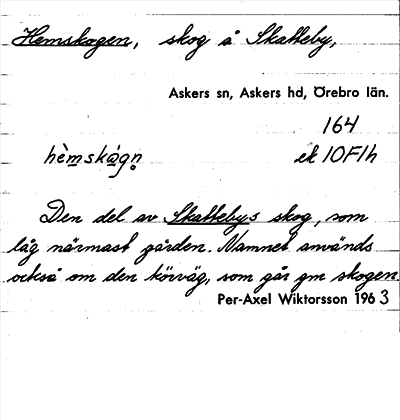 Hemskogen, skog å Skatteby,
Askers sn, Askers hd, Örebro län.
164
hèmskågn̥ ek 10F1h
Den del av Skattebys skog, som
låg närmast gården. Namnet används
också om den körväg, som går gm skogen.
Per-Axel Wiktorsson 1963